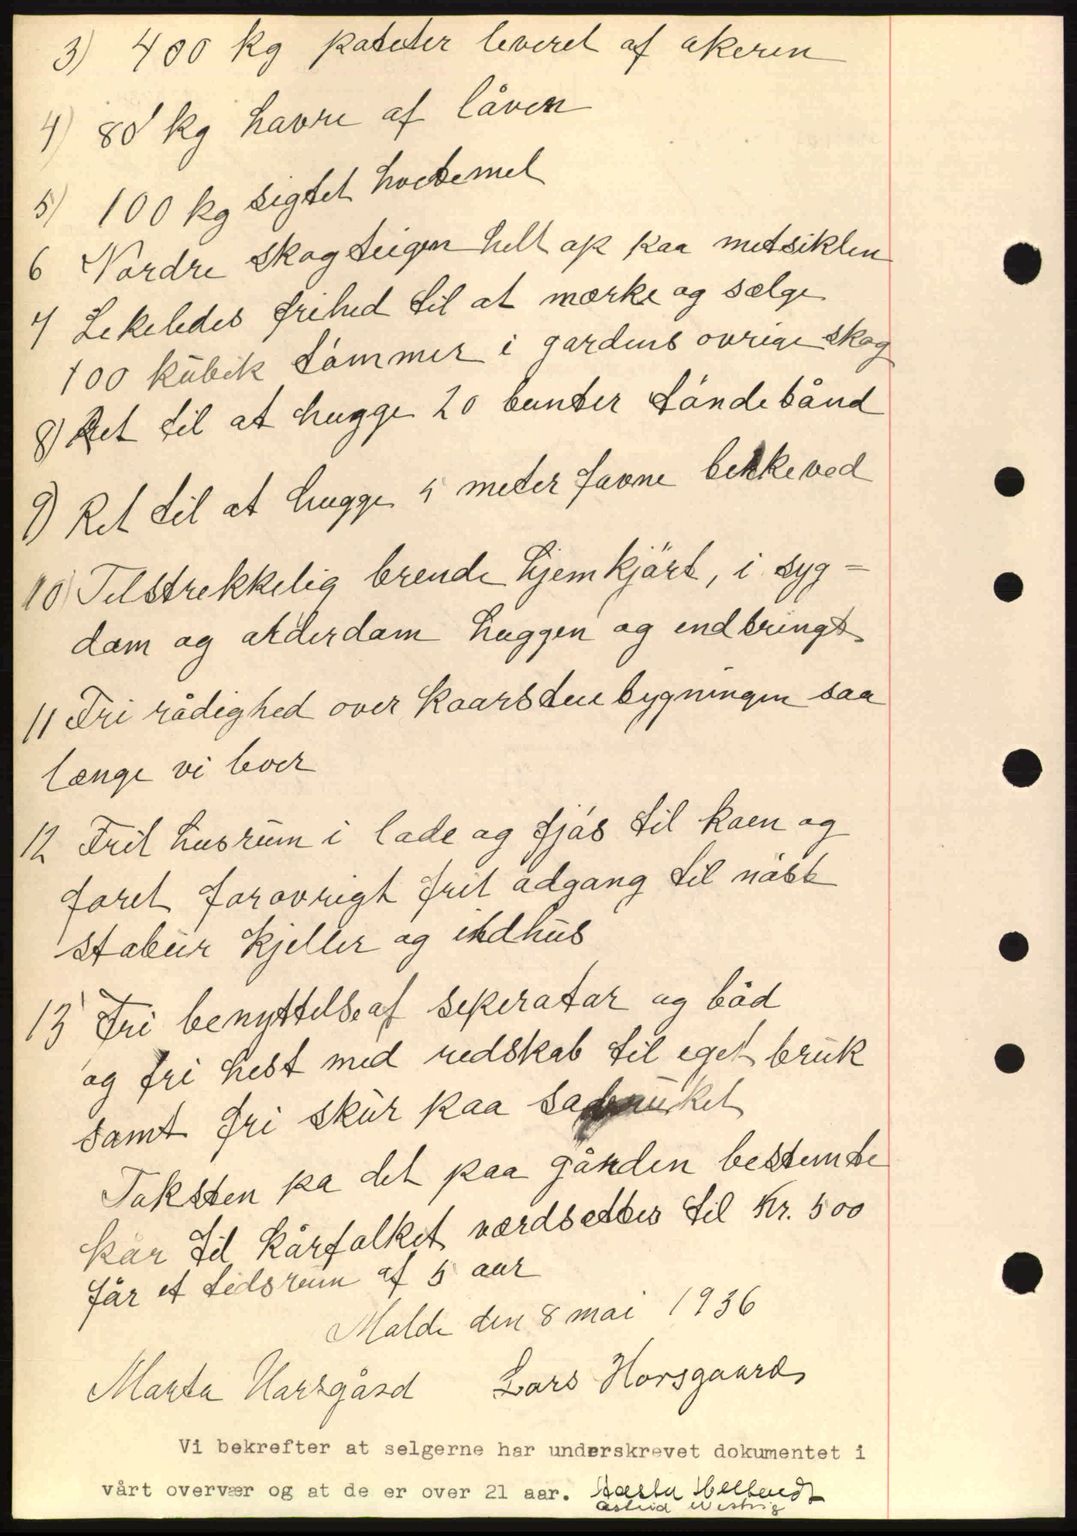 3) 400 kg poteter leveret af akeren
4) 80 kg havre af låven
5) 100 kg sigtet hvetemel
6 Nordre skogteigen helt op paa
7 Lekeledes frihed til at mærke og sælge
100 kubik tømmer i gardens ovrige skog
8) Ret til at hugge 20 bunter töndebånd
9) Ret til at hugge 5 meter favne
10) Telstrekkelig brende hjemkjört, i syg=
dom og alderdom huggen og endbringt
11 Fri rådighed over kaarstuebygningen saa
længe vi lever
12 Frit husrum i lade og fjös til koen og
foret forovrigt frit adgang til nöst
stabur kjeller og ildhus
13 Fri benyttelse af seperator og båd
og fri hest med redskab til eget bruk
samt fri skur paa sagbruket
Taksten på det paa gården bestemte
kår til kårfolket værdsettes til Kr. 500
får et tidsrum af 5 aar
Molde den 8 mai 1936
Marta Horsgård Lars Horsgaard
Vi bekrefter at selgerne har underskrevet dokumentet i
vårt overvær og at de er over 21 aar.
Astrid